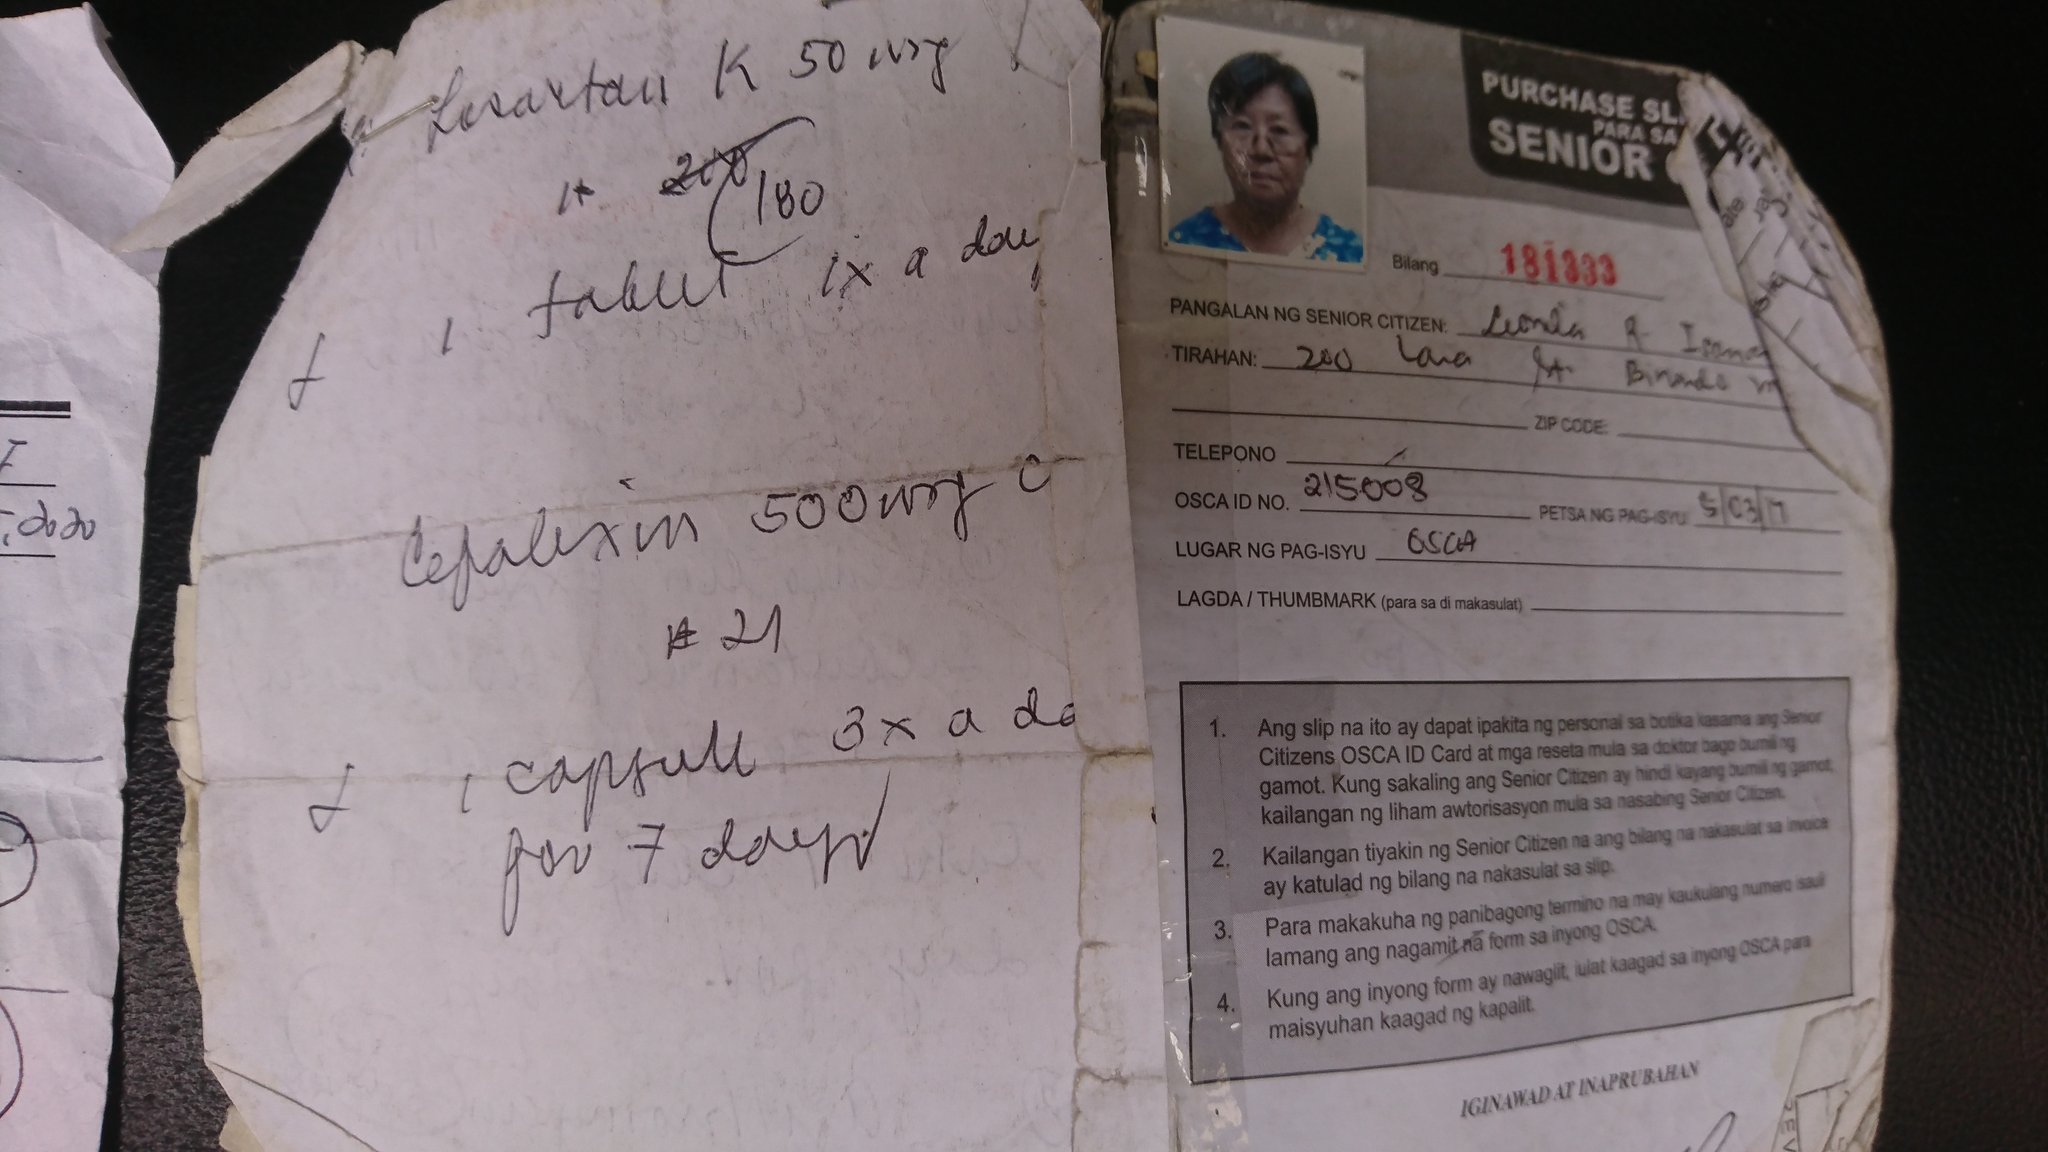 Losartan K 50 mg
# 200
180
1 tablet 1x a day
Cefalexin 500mg C
# 21
1 capsule 3x a da
for 7 days
2020
PURCHASE SL
PARA SA
SENIOR
Bilang 181333
PANGALAN NG SENIOR CITIZEN: R.
TIRAHAN: 200 Lara St. Binondo
ZIP CODE:
TELEPONO
OSCA ID NO. 215008 PETSA NG PAG-ISYU 5/03/17
LUGAR NG PAG-ISYU OSCA
LAGDA / THUMBMARK (para sa di makasulat)
1. Ang slip na ito ay dapat ipakita ng personal sa botika kasama ang Senior
Citizens OSCA ID Card at mga reseta mula sa doktor bago bumili ng
gamot. Kung sakaling ang Senior Citizen ay hindi kayang bumili ng gamot,
kailangan ng liham awtorisasyon mula sa nasabing Senior Citizen.
2. Kailangan tiyakin ng Senior Citizen na ang bilang na nakasulat sa invoice
ay katulad ng bilang na nakasulat sa slip.
3. Para makakuha ng panibagong termino na may kaukulang numero isauli
lamang ang nagamit na form sa inyong OSCA.
4. Kung ang inyong form ay nawaglit, iulat kaagad sa inyong OSCA para
maisyuhan kaagad ng kapalit.
IGINAWAD AT INAPRUBAHAN